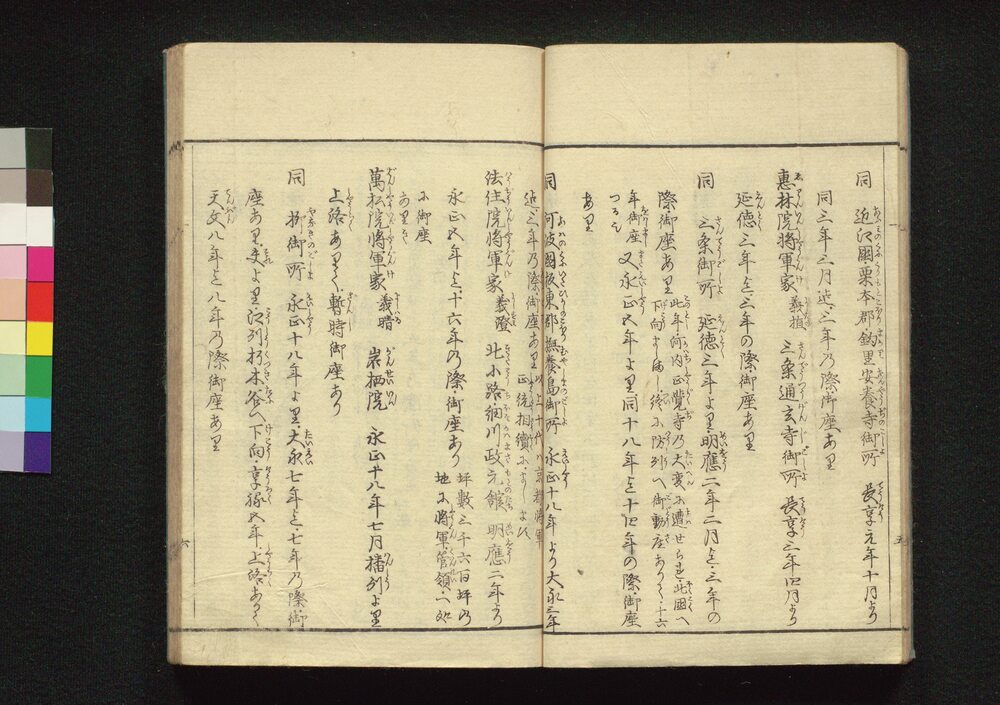 同 近江國栗本郡鈎里安養寺御所 長享元年十月より
同三年三月迄三年乃際御座あり
惠林院將軍家 義植 三条通玄寺御所 長享三年四月より
延徳三年迄三年の際御座あり
同 三条御所 延徳三年より明應二年二月迄三年の
際御座あり 此年河内正覺寺乃大変に遭せられ此國へ
下向まし〳〵後に防列へ御動座ありて十六
年御座 又永正五年より同十八年迄十四年の際御座
つるを
あり
同 阿波國板東郡撫養島御所 永正十八年より大永三年
迄三年乃際御座あり 以上十代ハ京都將軍
正統相續にましますよし
法住院將軍家 義澄 北小路細川政元館 明應二年より
永正五年迄十六年乃際御座あり 坪數三千六百坪乃
地に將軍管領一処
に御座
ありき
萬松院將軍家 義晴 岩栖院 永正十八年七月播列より
上洛ありて暫時御座あり
同 柳御所 永正十八年より大永七年迄七年乃際御
座あり夫より江列朽木谷へ下向享祿五年上洛ありて
天文八年迄八年乃際御座あり
五
六